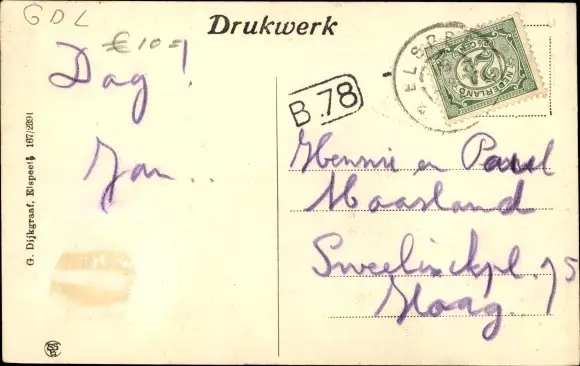 GDL
€ 10=
Drukwerk
Dag!
Jan..
B.78
ELSPEE
NEDERLAND
2½
CENT
Hennie en Paul
Maasland
Sweelinckpl. 75
Haag.
G. Dijkgraaf, Elspeet, 167/2891